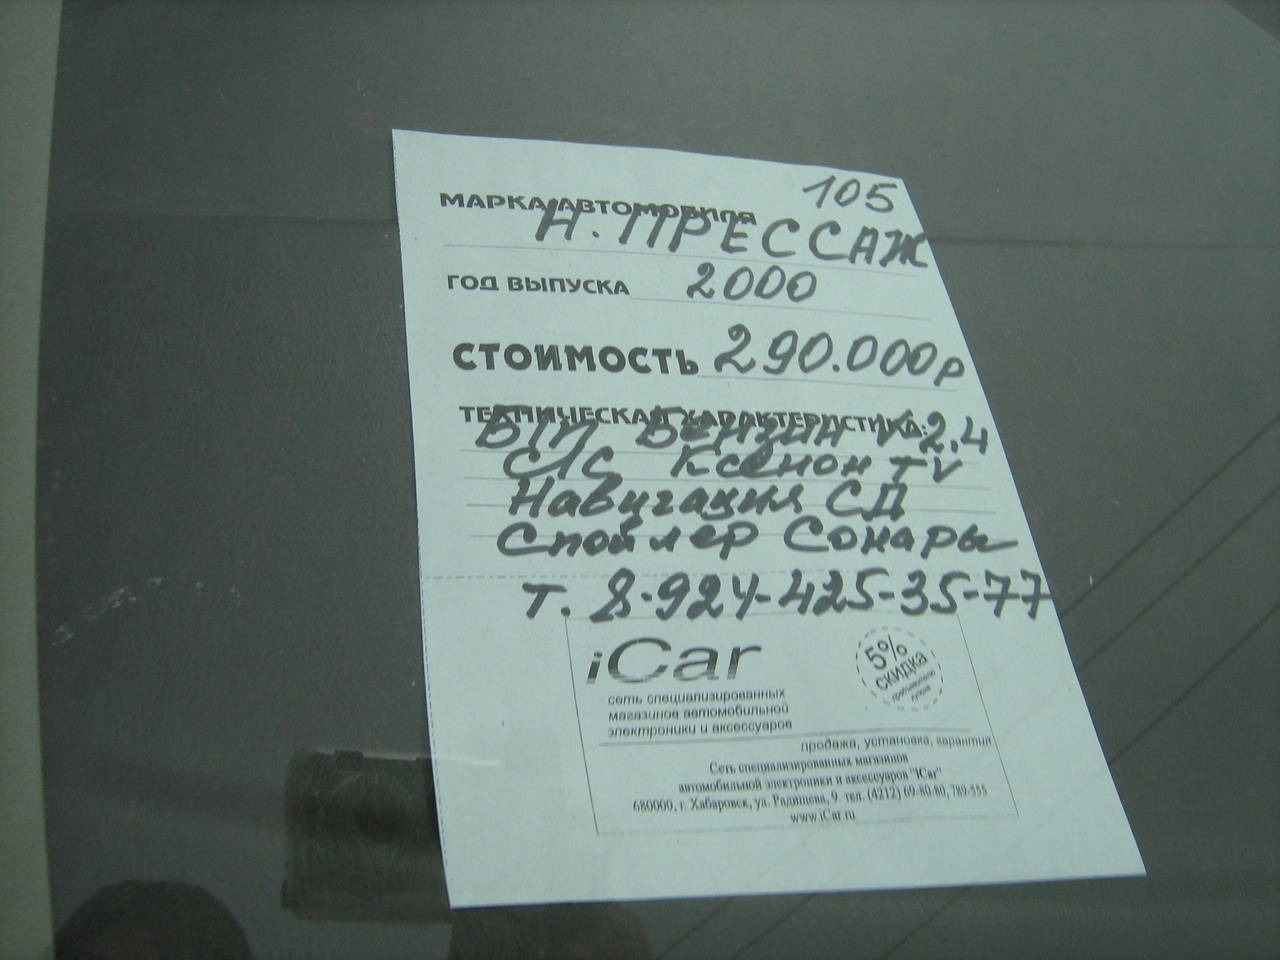 105
МАРКА АВТОМОБИЛЯ Н. ПРЕССАЖ
ГОД ВЫПУСКА 2000
СТОИМОСТЬ 290.000р
ТЕХНИЧЕСКАЯ ХАРАКТЕРИСТИКА:
Б/П Бензин V 2.4
С/С Ксенон TV
Навигация СД
Спойлер Сонары
т. 8-924-425-35-77
iCar
сеть специализированных
магазинов автомобильной
электроники и аксессуаров
5%
СКИДКА
предъявителю
купона
продажа, установка, гарантия
Сеть специализированных магазинов
автомобильной электроники и аксессуаров "iCar"
680000, г. Хабаровск, ул. Радищева, 9. тел. (4212) 69-80-80, 789-555
www.iCar.ru